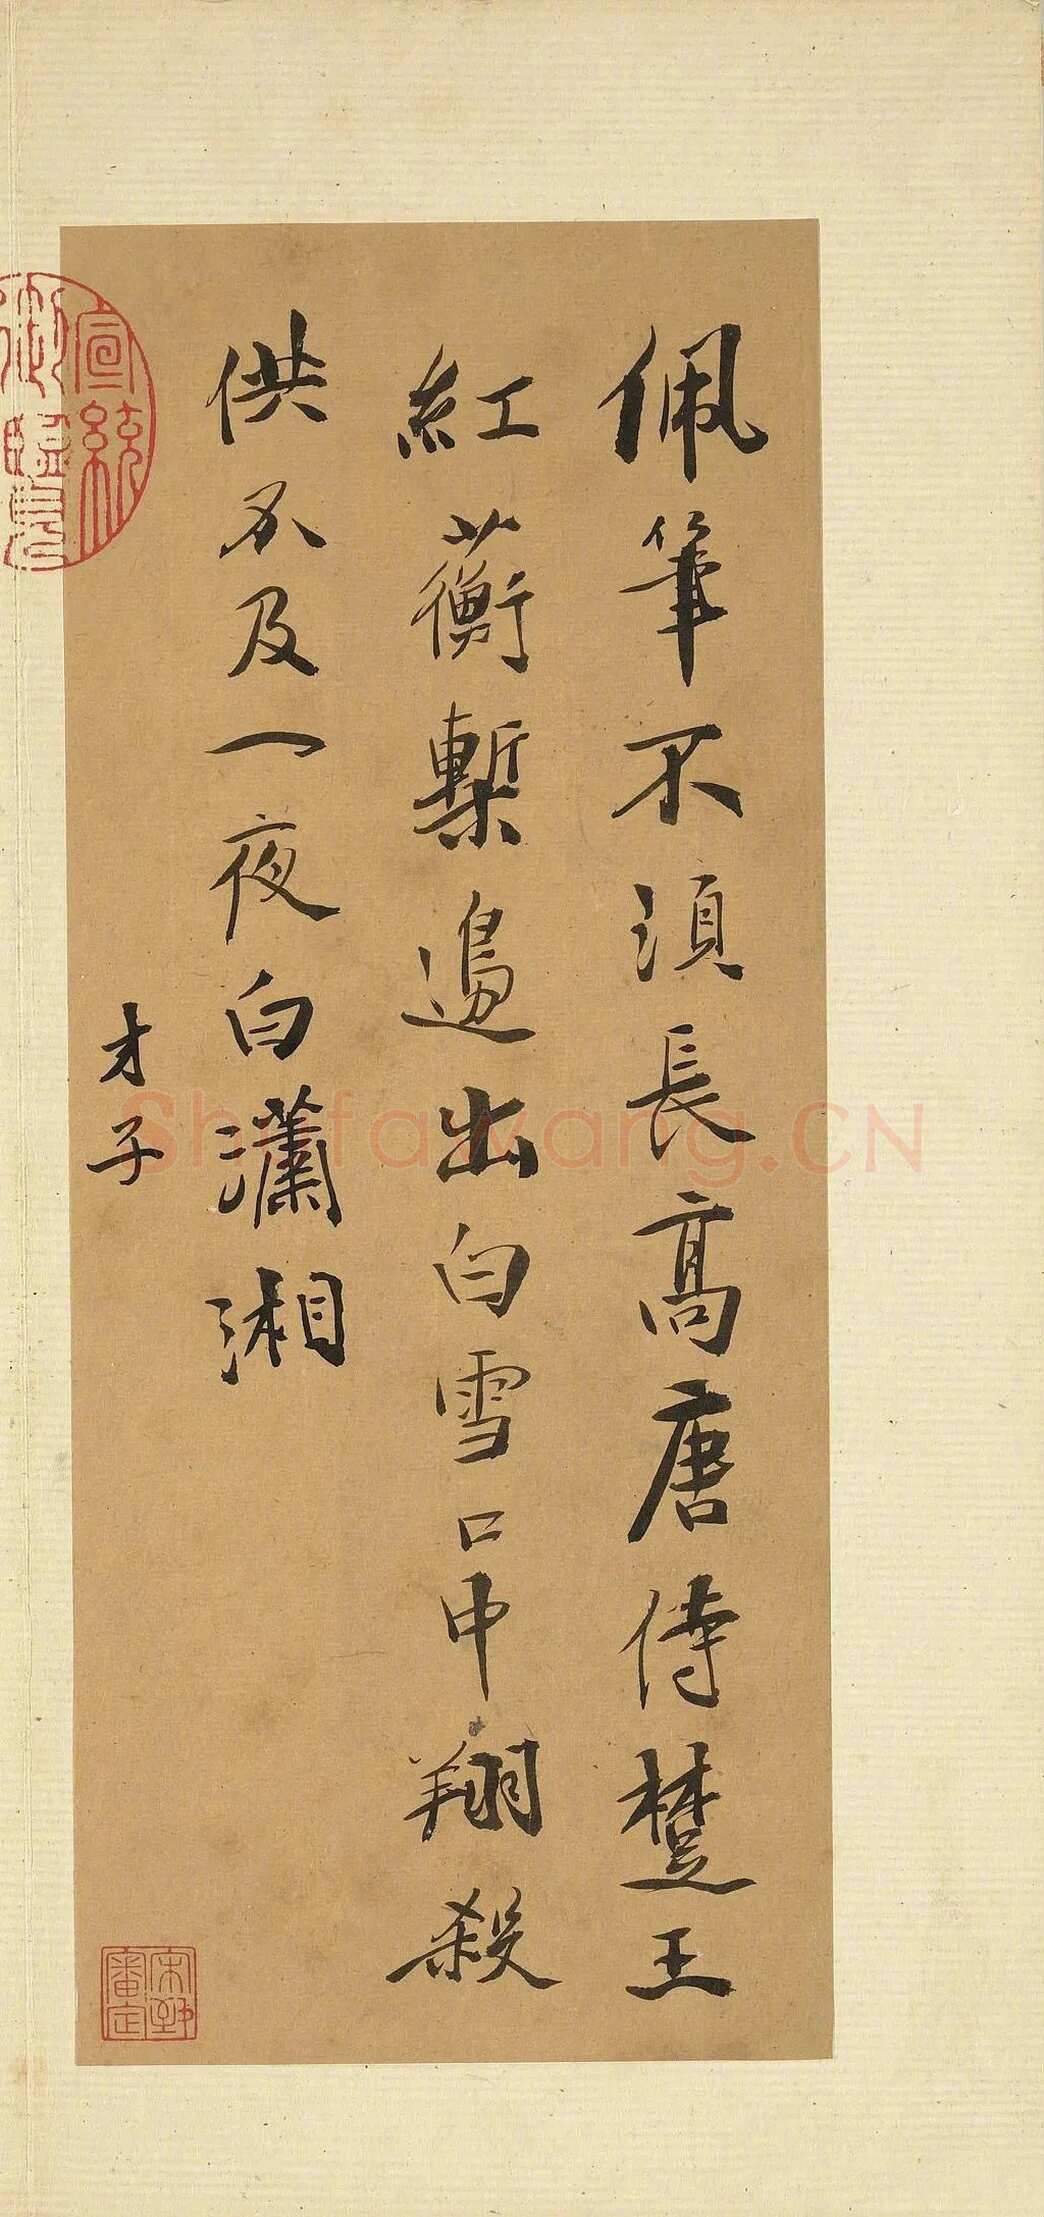 佩筆不須長高唐侍楚王
紅蘅槧邊出白雪口中翔殺
供不及一夜白瀟湘
才子
宣統御覽
宋犖審定
Shufawang.CN